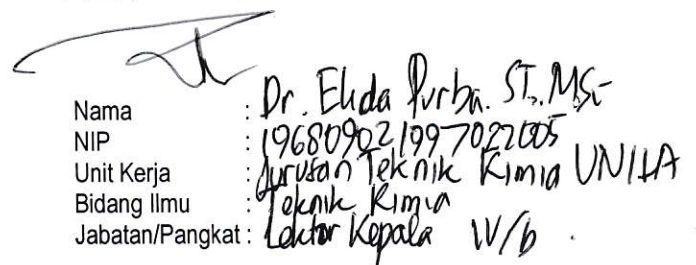 Nama : Dr. Elida Purba. ST. MSi
NIP : 196809021997022005
Unit Kerja : Jurusan Teknik Kimia UNILA
Bidang Ilmu : Teknik Kimia
Jabatan/Pangkat : Lektor Kepala IV/b .